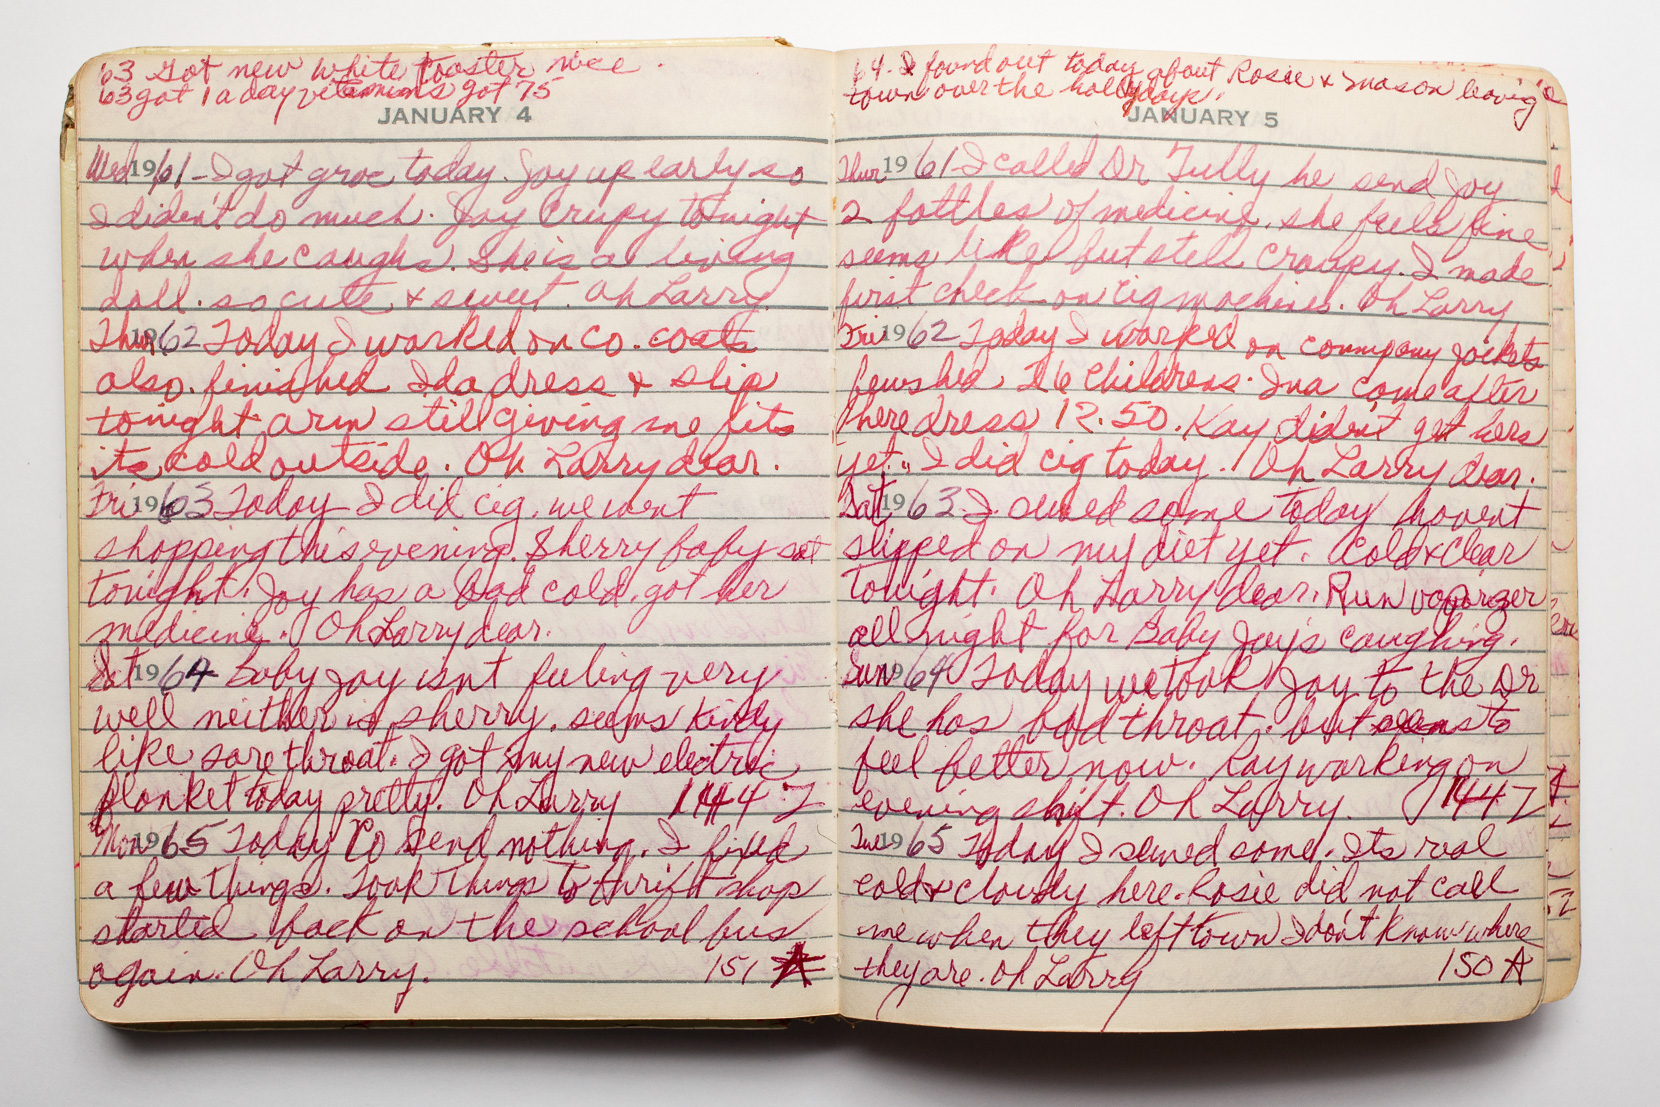 '63 Got new white toaster nice.
'63 got 1 a day vitamins got 75
JANUARY 4
Wed 1961 - I got groc today. Joy up early so
I diden't do much. Joy Crupy tonight
when she caughs. She is a living
doll. so cute & sweet. Oh Larry.
Thur 1962 Today I worked on Co. coats
also. finished Ida dress & slip
tonight arm still giving me fits
its cold outside. Oh Larry dear.
Fri 1963 Today I did cig. we went
shopping this evening. Sherry baby sat
tonight. Joy has a bad cold. got her
medicine. Oh Larry dear.
Sat 1964 Baby Joy isnt feeling very
well neither is sherry. seems kindy
like sore throat. I got my new electric
blanket today pretty. Oh Larry 144
Mon 1965 Today Co Send nothing. I fixed
a few things. Took things to thrift shop
started back on the school bus
again. Oh Larry. 151
64. I found out today about Rosie & Mason leaving
town over the hollydays.
JANUARY 5
Thur 1961 - I called Dr Tully he send Joy
2 bottles of medicine. she feels fine
seems like but still Croupy. I made
first check on cig machines. Oh Larry
Fri 1962 Today I worked on company jackets
fewshed. 26 Childrens. Ina come after
here dress 12.50. Kay diden't get hers
yet. I did cig today. Oh Larry dear.
Sat 1963. I sewed some today hovent
slipped on my diet yet. Cold & clear
tonight. Oh Larry dear. Run vaporizer
all night for Baby Joy's caughing.
Sun 1964 Today we took Joy to the Dr
she has bad throat. but seems to
feel better now. Ray working on
evening shift. Oh Larry. 144
Tue 1965 Today I sewed some. Its real
cold & cloudy here. Rosie did not call
me when they left town I don't know where
they are. Oh Larry 150